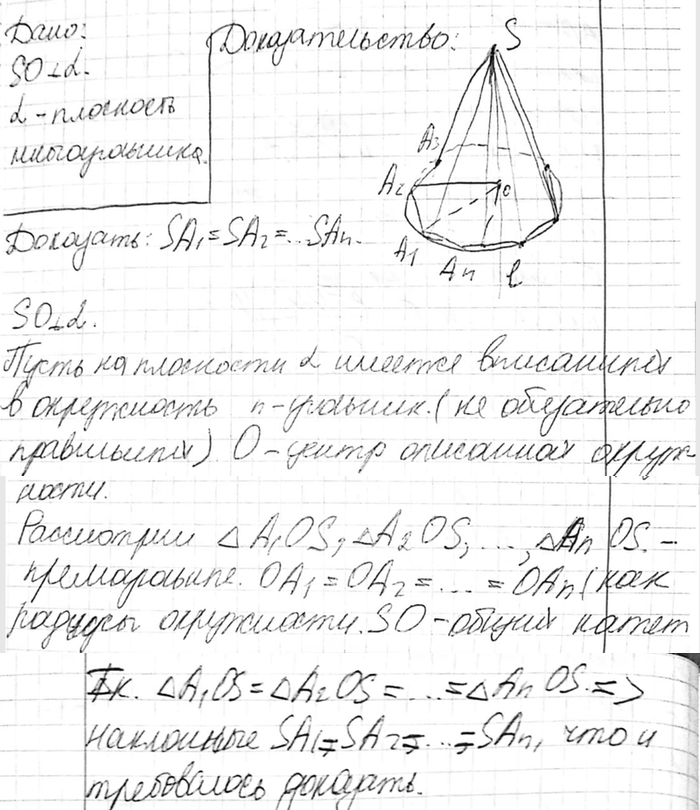 Дано:
SO⊥α.
α - плоскость
многоугольника.
Доказательство:
S
A3
A2
O
A1
An
l
Доказать: SA1=SA2=...SAn.
SO⊥α.
Пусть на плоскости α имеется вписанный
в окружность n-угольник. (не обязательно
правильный) O-центр описанной окруж-
ности.
Рассмотрим △A1OS, △A2OS, ..., △An OS. -
прямоугольные. OA1=OA2=...=OAn (как
радиусы окружности. SO-общий катет
Т.к. △A1OS=△A2OS=...=△An OS. =>
наклонные SA1=SA2=...=SAn, что и
требовалось доказать.